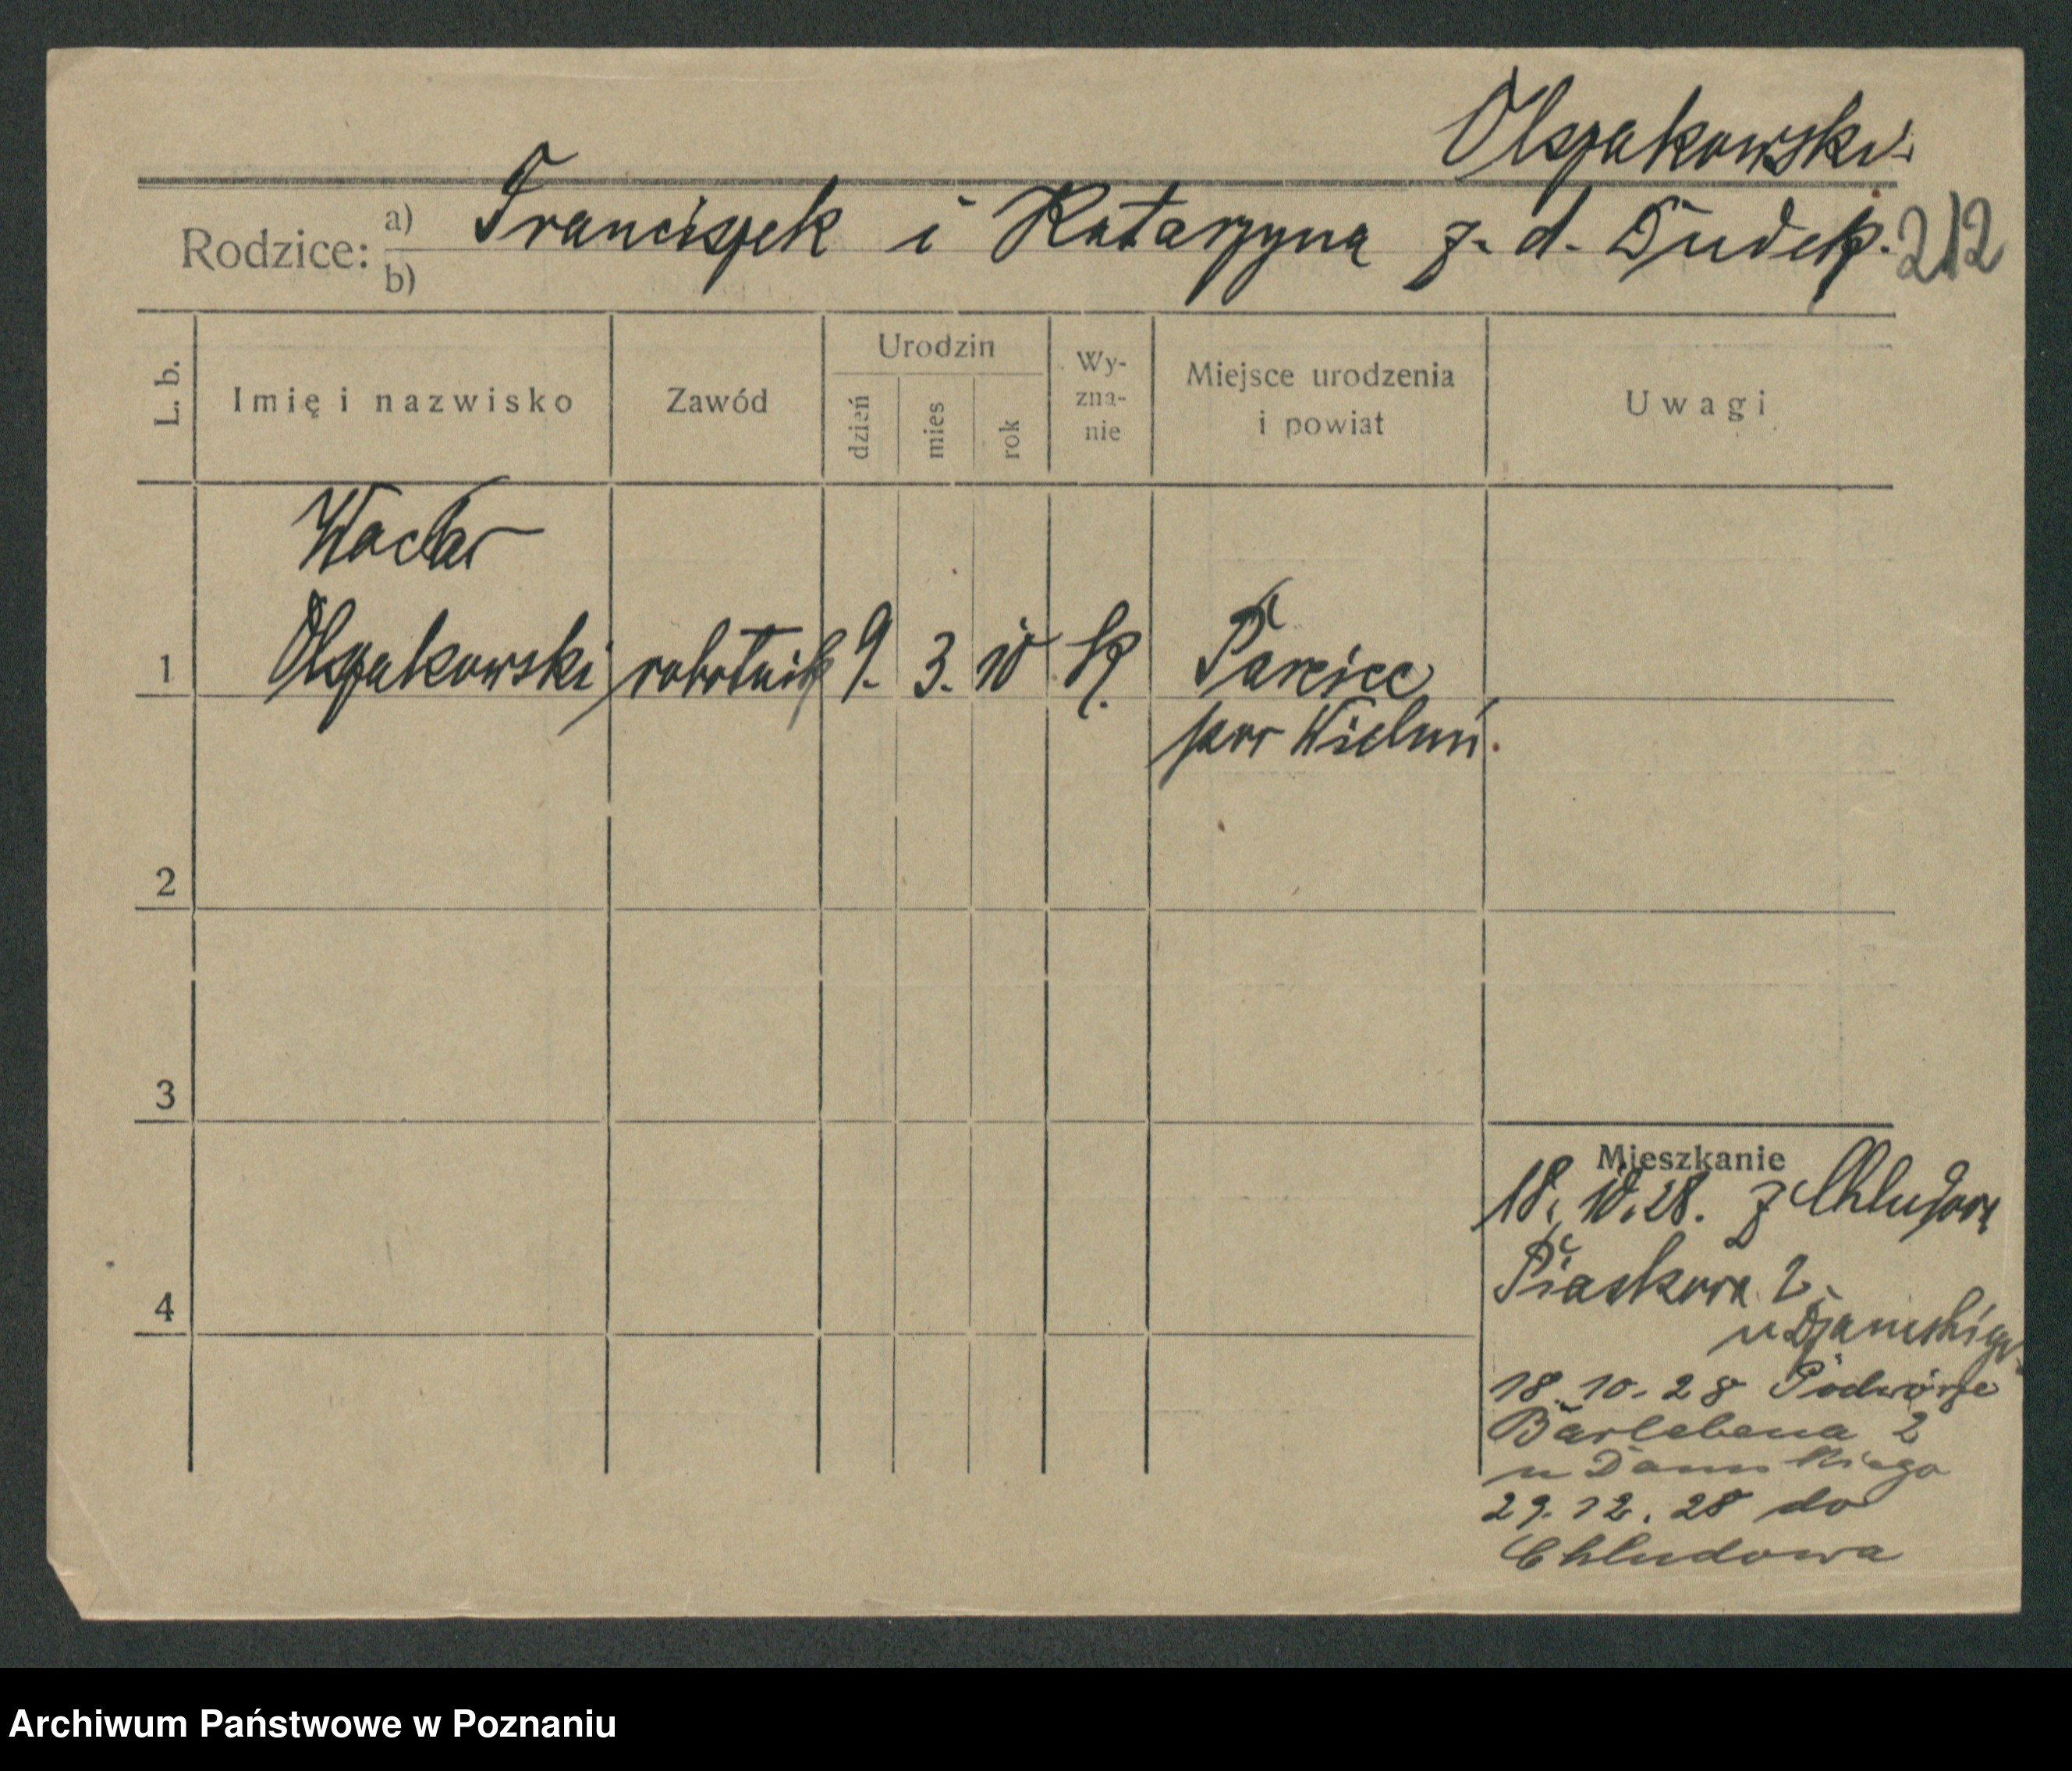 Olszakowski
Rodzice: a) Franciszek i Katarzyna z. d. Dudek. 212
b)
L. b. Imię i nazwisko Zawód Urodzin dzień mies rok Wy-zna-nie Miejsce urodzenia i powiat Uwagi
Wacław
1 Olszakowski robotnik 9. 3. 10 k. Parcice
pow Wieluń.
2
3
Mieszkanie
18. 10. 28. z Chludowa
Piaskowa 2
4
18. 10. 28 Podwórze
Barlebena 2
29. 12. 28 do
Chludowa
Archiwum Państwowe w Poznaniu